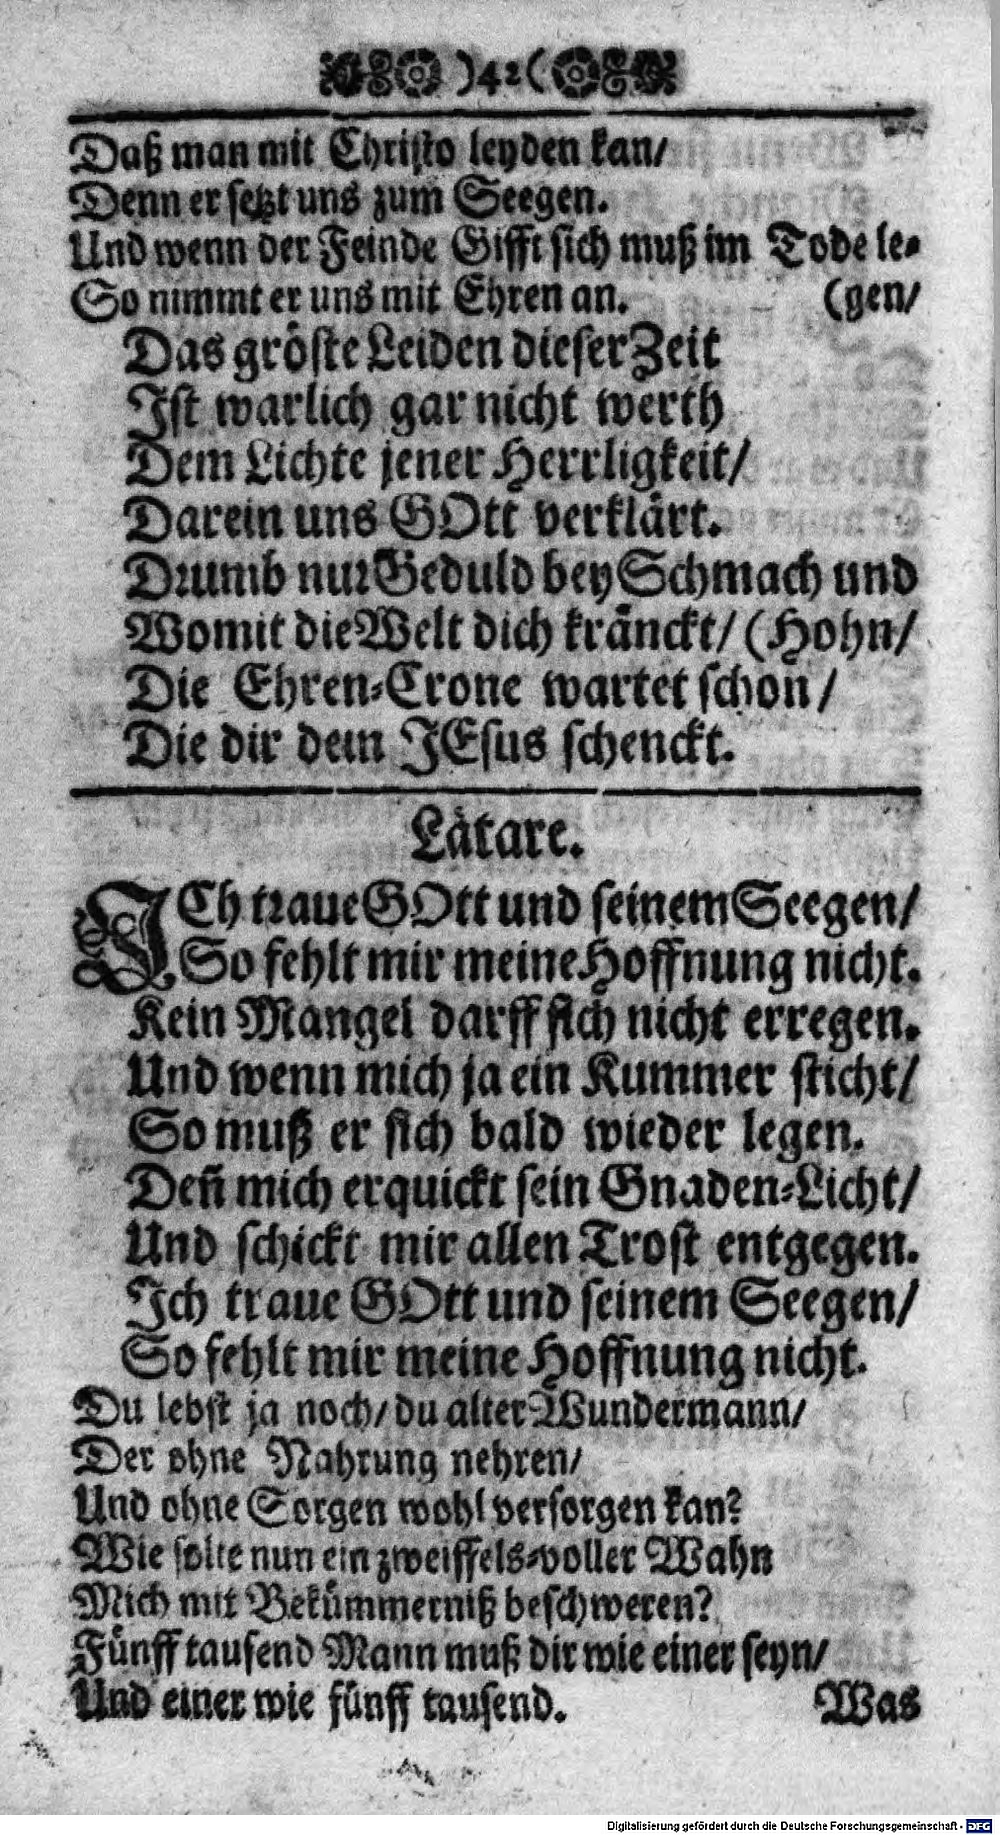 )42(
Daß man mit Christo leyden kan/
Denn er setzt uns zum Seegen.
Und wenn der Feinde Gifft sich muß im Tode le-
So nimmt er uns mit Ehren an. (gen/
Das gröste Leiden dieser Zeit
Ist warlich gar nicht werth
Dem Lichte jener Herrligkeit/
Darein uns GOtt verklärt.
Drumb nur Geduld bey Schmach und
Womit die Welt dich kränckt/ (Hohn/
Die Ehren-Crone wartet schon/
Die dir dein JEsus schenckt.
Lätare.
ICh traue GOtt und seinem Seegen/
So fehlt mir meine Hoffnung nicht.
Kein Mangel darff sich nicht erregen.
Und wenn mich ja ein Kummer sticht/
So muß er sich bald wieder legen.
Deñ mich erquickt sein Gnaden-Licht/
Und schickt mir allen Trost entgegen.
Ich traue GOtt und seinem Seegen/
So fehlt mir meine Hoffnung nicht.
Du lebst ja noch/ du alter Wundermann/
Der ohne Nahrung nehren/
Und ohne Sorgen wohl versorgen kan?
Wie solte nun ein zweiffels-voller Wahn
Mich mit Bekümmerniß beschweren?
Fünff tausend Mann muß dir wie einer seyn/
Und einer wie fünff tausend. Was
Digitalisierung gefördert durch die Deutsche Forschungsgemeinschaft - DFG